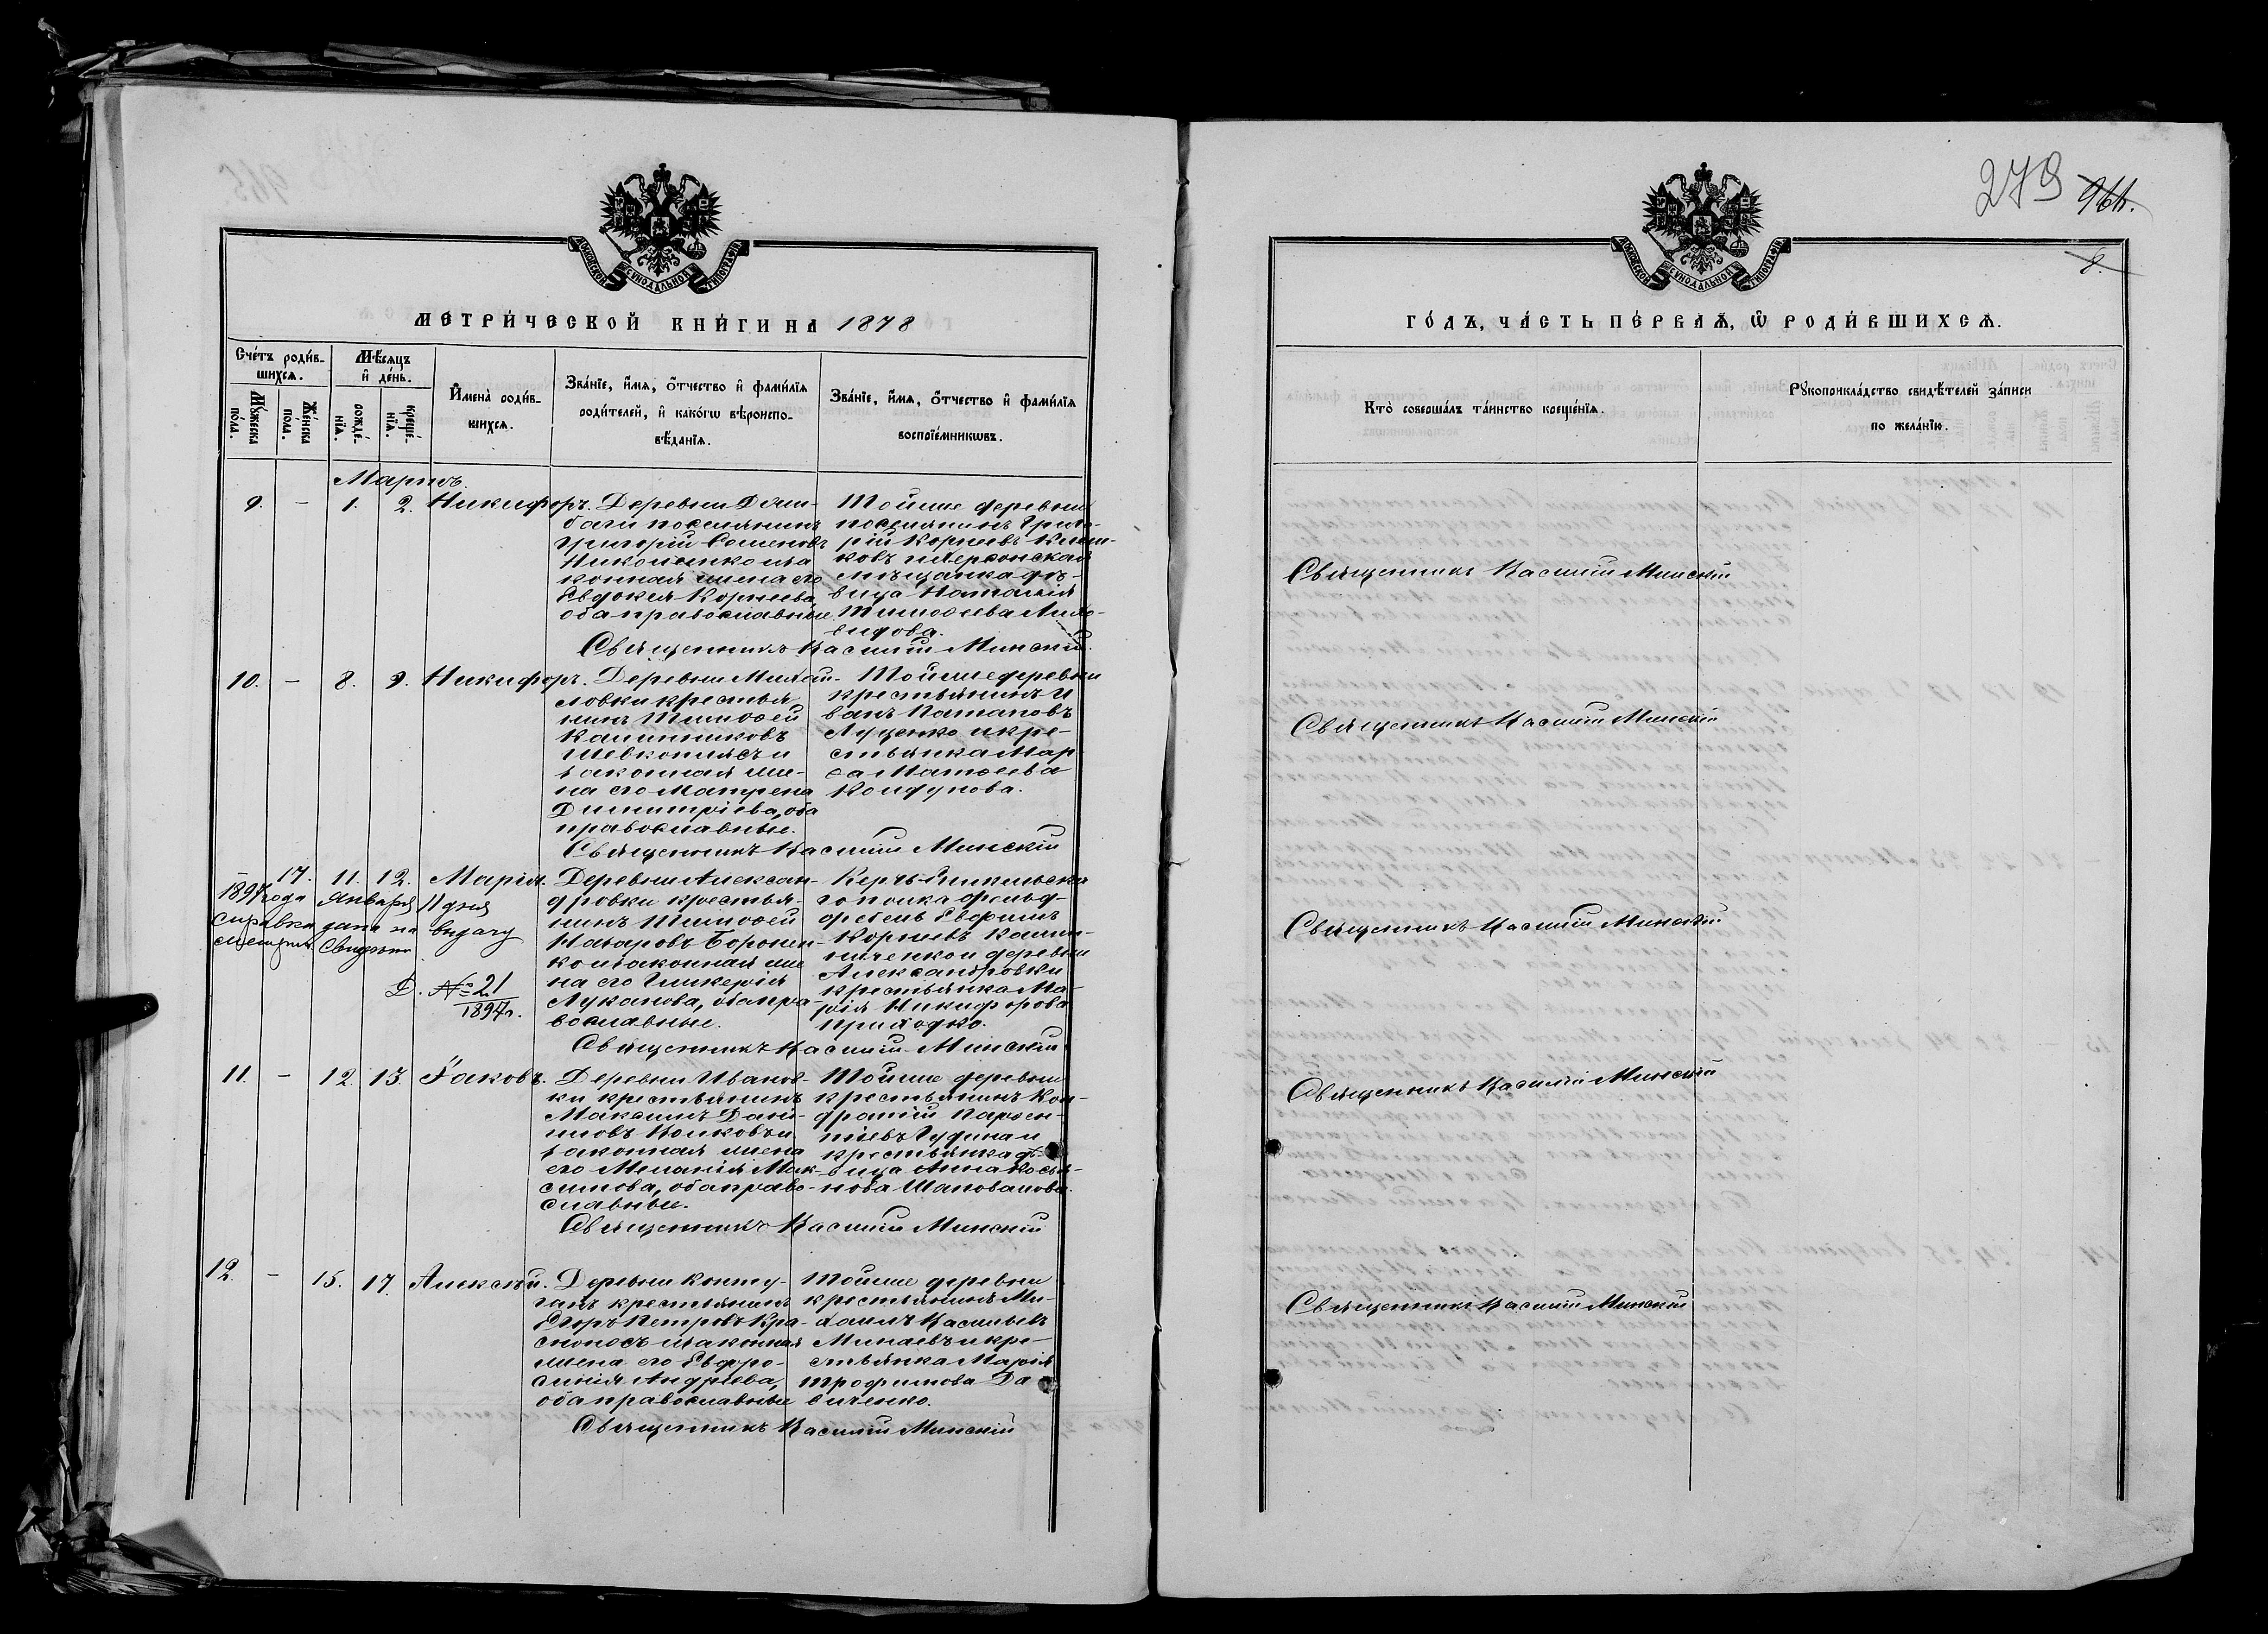 МОСКОВСКОЙ СѴНОДАЛЬНОЙ ТИПОГРАФІИ
МЕТРИ́ЧЕСКОЙ КНИ́ГИ НА 1878
Сче́тъ роди́в-
шихсѧ.
Мꙋ́жеска
по́ла.
Же́нска
по́ла.
Мѣ́сѧцъ
и҆ де́нь.
рожде́-
нїѧ.
креще́-
нїѧ.
И҆мена̀ роди́в-
шихсѧ.
Зва́нїе, и҆́мѧ, ѻ҆́тчество и҆ фами́лїѧ
роди́телей, и҆ како́гѡ вѣроиспо-
вѣ́данїѧ.
Зва́нїе, и҆́мѧ, ѻ҆́тчество и҆ фами́лїѧ
воспрїе́мникѡвъ.
Мартъ.
9. – 1. 2. Никифоръ.
поселянинъ
Григорій Семеновъ
Николенко и за
конная жена его
Евдокія Корнеева,
оба православные.
Тойже деревни
поселянинъ Григо-
рій Корнеевъ
ковъ и Херсонская
мѣщанка дѣ-
вица Наталія
Тимоѳеева
Священникъ Василій Минскій.
10. – 8. 9. Никифоръ.
Деревни Михай-
ловки крестья
нинъ Тимоѳей
Калинниковъ
Шевкоплясъ и
законная же-
на его Матрена
Димитріева, оба
православные.
Тойже деревни
крестьянинъ И
ванъ Потаповъ
Луценко и кре-
стьянка Мар
ѳа Матѳеева
Колдунова.
Священникъ Василій Минскій
– 17. 11. 12. Марія.
Деревни Алексан-
дровки крестья-
нинъ Тимоѳей
Назаровъ Боронен-
ко и законная же
на его Гликерія
Луканова, оба пра-
вославные.
Керчь-Еникольска
го полка фельд-
фебель Евфимъ
Корнеевъ Калин-
ниченко и деревни
Александровки
крестьянка Ма-
рія Никифорова
Приходко.
1897 года Января 11 дня
справка дана на выдачу
Д. № 21
1897 г.
Священникъ Василій Минскій
11. – 12. 13. Іаковъ.
Деревни Иванов-
ки крестьянинъ
Максимъ Дани-
ловъ Волковъ и
законная жена
его Меланія Мак-
симова, оба право-
славные.
Тойже деревни
крестьянинъ Кон-
дратій Парѳен-
тіевъ Гудина и
крестьянка дѣ-
вица Анна Косья-
нова Шаповалова.
Священникъ Василій Минскій
12. – 15. 17. Алексѣй.
Деревни Конту-
ганъ крестьянинъ
Егоръ Петровъ Кра-
сноносъ и законная
жена его Евфро-
синія Андріева,
оба православные
Тойже деревни
крестьянинъ Ми-
хаилъ Васильевъ
Минаевъ и кре-
стьянка Марія
Трофимова Да
виченко.
Священникъ Василій Минскій
279 966.
8.
МОСКОВСКОЙ СѴНОДАЛЬНОЙ ТИПОГРАФІИ
ГО́ДЪ, ЧА́СТЬ ПЕ́РВАѦ, Ѡ҆ РОДИ́ВШИХСѦ.
Кто̀ соверша́лъ та́инство креще́нїѧ.
Рꙋкоприкла́дство свидѣ́телей за́писи
по жела́нїю.
Священникъ Василій Минскій
Священникъ Василій Минскій
Священникъ Василій Минскій
Священникъ Василій Минскій
Священникъ Василій Минскій